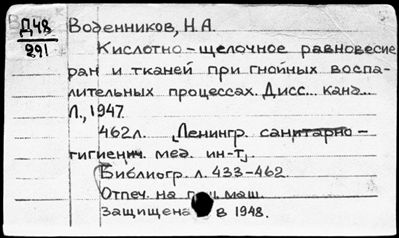 Д48
291
Воденников, Н.А.
Кислотно-щелочное равновесие
ран и тканей при гнойных воспа-
лительных процессах. Дисс... канд...
Л., 1947.
462л. [Ленингр. санитарно-
гигиенич. мед. ин-т].
Библиогр. л. 433-462
Отпеч. на маш.
Защищена в 1948.